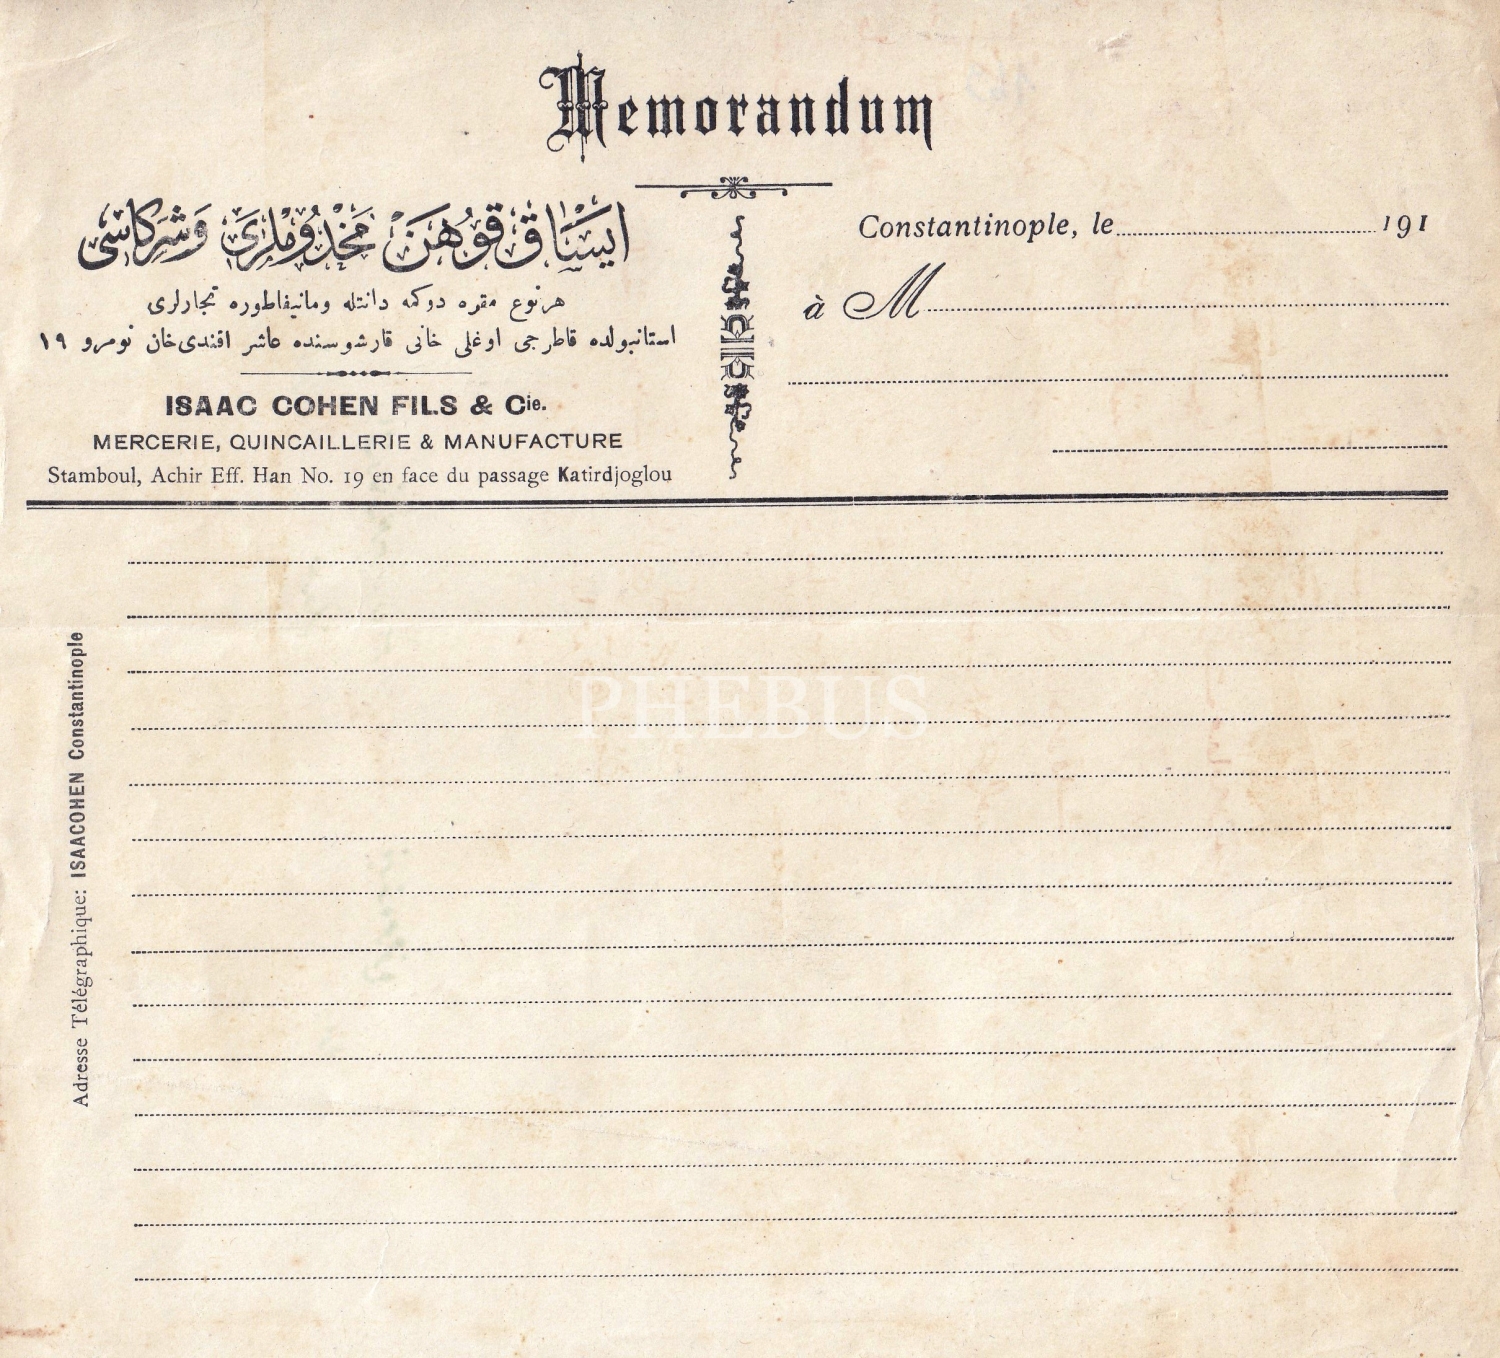 Memorandum
ايساق قوهن مخدوملری وشركاسی
هرنوع مقره دوكمه دانتله ومانيفاطوره تجارلری
استانبولده قاطرجی اوغلی خانی قارشوسنده عاشر افندی خان نومرو ١٩
ISAAC COHEN FILS & Cie.
MERCERIE, QUINCAILLERIE & MANUFACTURE
Stamboul, Achir Eff. Han No. 19 en face du passage Katirdjoglou
Constantinople, le 191
à M
Adresse Télégraphique: ISAACOHEN Constantinople
PHEBUS